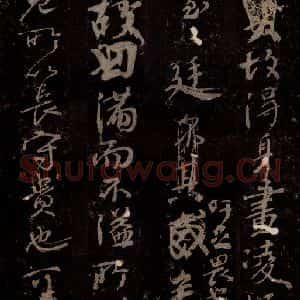 故得身畫凌
之廷
吁足畏
故曰滿而不溢所
所以長守貴也可
Shufawang.CN